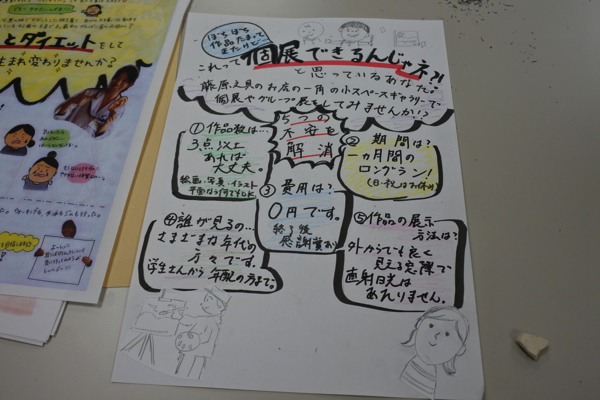 とダイエットをして
生まれ変わりませんか?
ぼちぼち
作品たまって
きたけど…
これって個展できるんじゃネ?!
と思っているあなた。
藤原文具のお店の一角の小スペースギャラリーで
個展やグループ展をしてみませんか!?
5つの
不安を
解消
①作品数は…
3点以上
あれば
大丈夫。
絵画・写真・イラスト
平面なら何でもOK
②期間は?
一ヵ月間の
ロングラン!
(日・祝はお休み)
③費用は?
0円です。
終了後
感謝賞あり
④誰が見るの…
さまざまな年代の
方々です。
学生さんから年配の方まで。
⑤作品の展示
方法は?
外からでも良く
見える窓際で
直射日光は
あたりません。